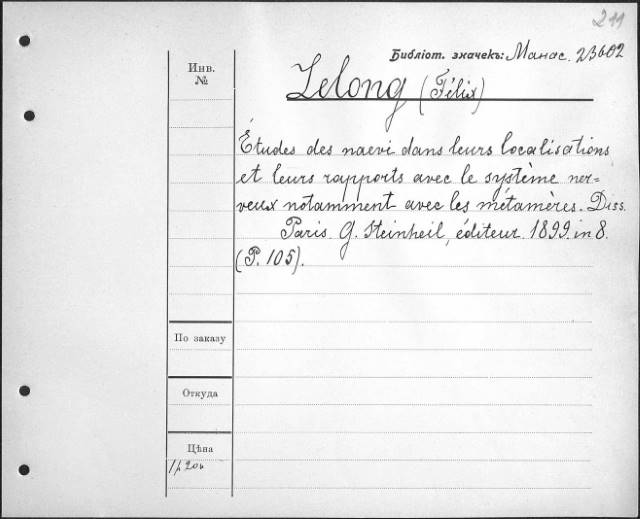 211
Библіот. значекъ: Манас. 23602
Инв.
№
Lelong (Félix)
Études des naevi dans leurs localisations
et leurs rapports avec le système ner=
veux notamment avec les métamères. Diss.
Paris. G. Steinheil, éditeur. 1899. in 8.
(P. 105).
По заказу
Откуда
Цѣна